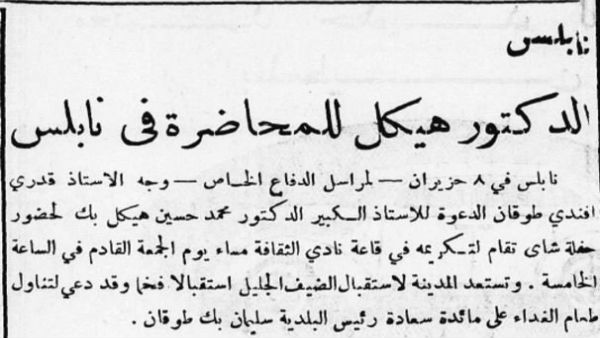 نابلس
الدكتور هيكل للمحاضرة في نابلس
نابلس في ٨ حزيران — لمراسل الدفاع الخاص — وجه الاستاذ قدري
افندي طوقان الدعوة للاستاذ الكبير الدكتور محمد حسين هيكل بك لحضور
حفلة شاى تقام لتكريمه في قاعة نادي الثقافة مساء يوم الجمعة القادم في الساعة
الخامسة . وتستعد المدينة لاستقبال الضيف الجليل استقبالا فخما وقد دعي لتناول
طعام الغداء على مائدة سعادة رئيس البلدية سليمان بك طوقان .